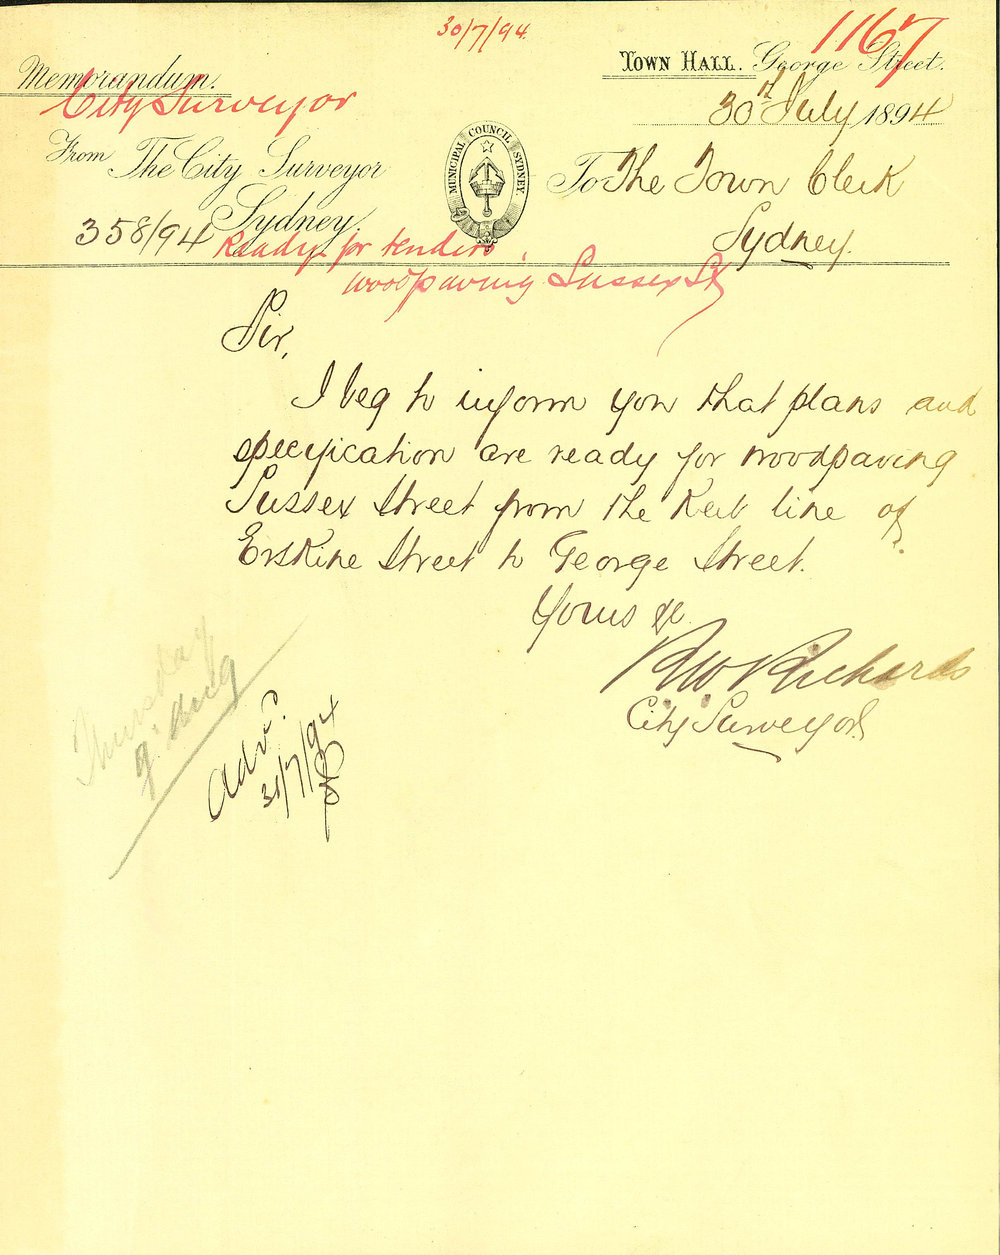 30/7/94
1167
Memorandum.
Town Hall. George Street.
City Surveyor
30th July 1894
From The City Surveyor
Sydney.
MUNICIPAL COUNCIL SYDNEY
To The Town Clerk
Sydney.
358/94
Ready for tenders,
woodpaving Sussex St
Sir,
I beg to inform you that plans and
specification are ready for woodpaving
Sussex Street from the Kerb line of
Erskine Street to George Street.
Yours &c.
R W Richards
City Surveyor
Thursday
9. Aug
Adv.
31/7/94